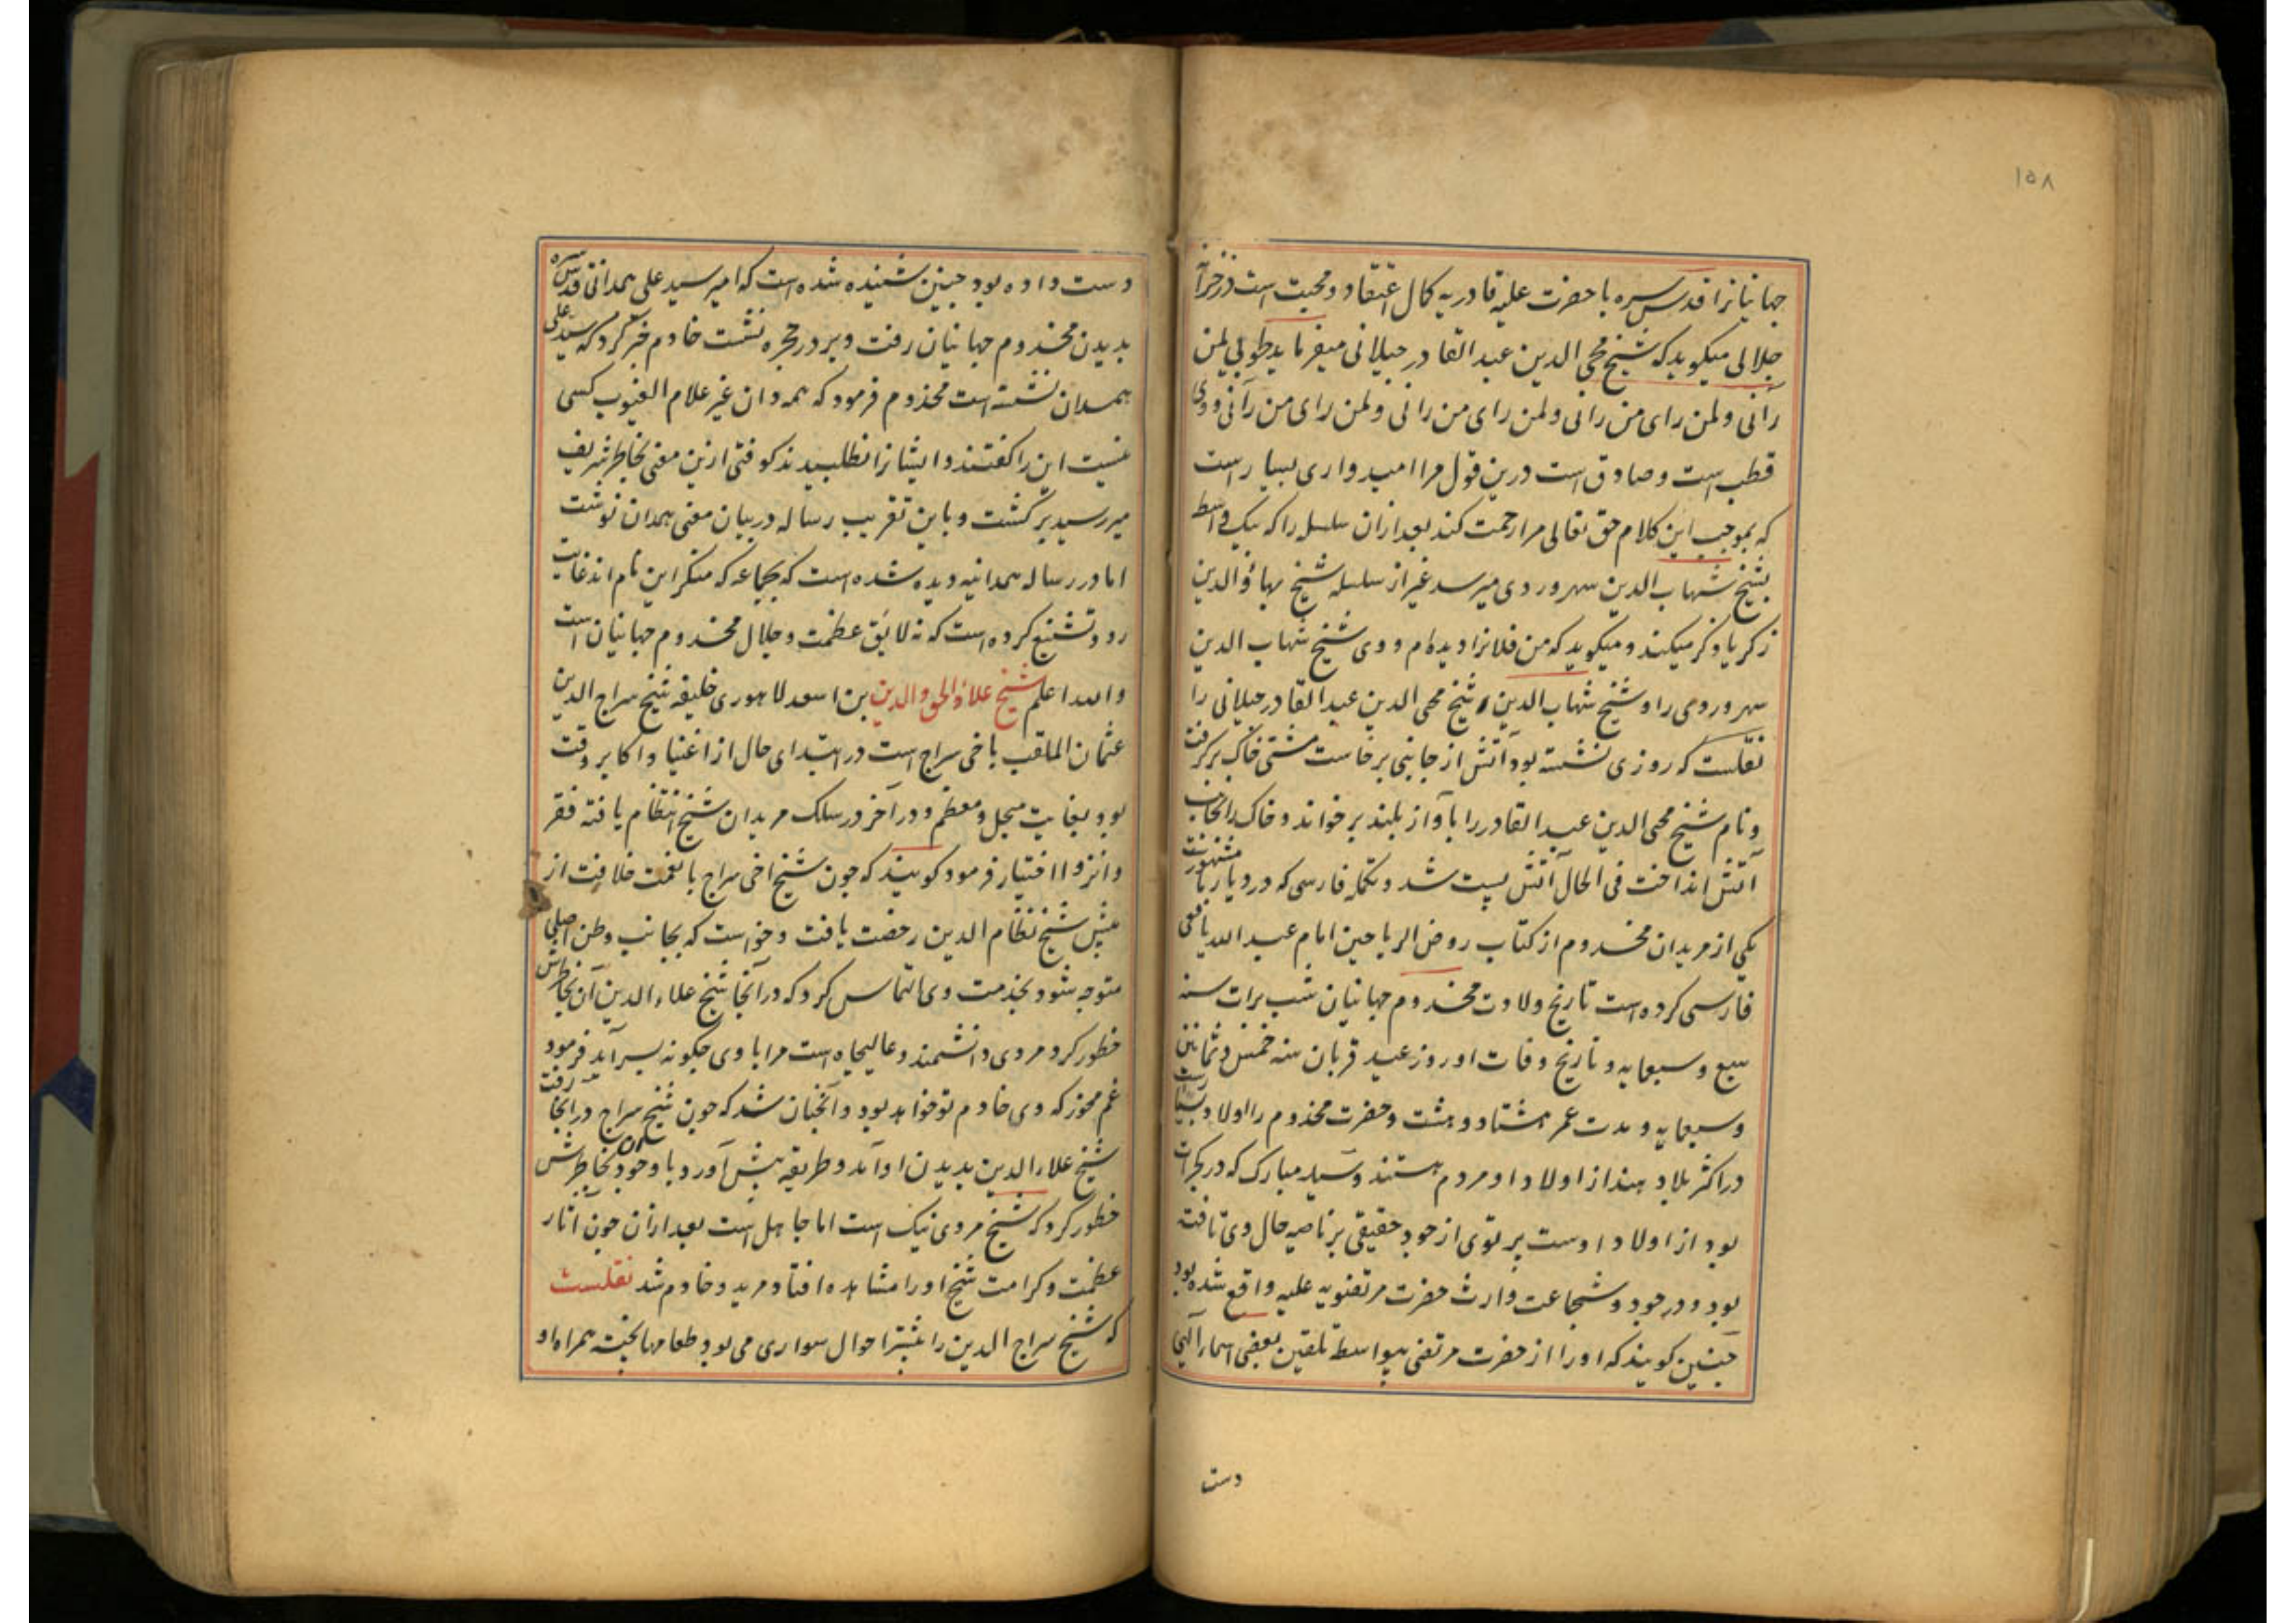 ۱۵۸
جهانیانرا قدس سره با حضرت علیه قادریه کمال اعتقاد و محبت است در خزانه
جلالی میکوید که شیخ محی الدین عبد القادر جیلانی میفرماید طوبی لمن
رآنی ولمن رای من رانی ولمن رای من رانی ولمن رای من رآنی و وی
قطب است و صادق است درین قول مرا امیدواری بسیار است
که بموجب این کلام حق تعالی مرا رحمت کند بعد ازان سلسله را که بیک واسطه
بشیخ شهاب الدین سهروردی میرسد غیر از سلسله شیخ بهاؤ الدین
زکریا ذکر میکند و میکوید که من فلانرا دیده ام و وی شیخ شهاب الدین
سهروردی را و شیخ شهاب الدین شیخ محی الدین عبد القادر جیلانی را
نقلست که روزی نشسته بود آتش از جانبی برخاست مشتی خاک برکرفت
و نام شیخ محی الدین عبد القادر را بآواز بلند برخواند و خاک را بجانب
آتش انداخت فی الحال آتش پست شد و تکمله فارسی که در دیار ما مشهورست
یکی از مریدان مخدوم از کتاب روض الریاحین امام عبد الله یافعی
فارسی کرده است تاریخ ولادت مخدوم جهانیان شب برات سنه
سبع و سبعمایه و تاریخ وفات او روز عید قربان سنه خمس و ثمانین
و سبعمایه و مدت عمر هشتاد و هشت و حضرت مخدوم را اولاد بسیارست
در اکثر بلاد هند از اولاد او مردم هستند و سید مبارک که در کجرات
بود از اولاد اوست پرتوی از جود حقیقی بر ناصیه حال وی تافته
بود و در جود و شجاعت وارث حضرت مرتضویه علیه واقع شده بود
چنین کویند که او را از حضرت مرتضی بیواسطه تلقین بعضی اسماء الهی
دست
دست داده بود چنین شنیده شده است که امیر سید علی همدانی قدس سره
بدیدن مخدوم جهانیان رفت و بر در حجره نشست خادم خبر کرد که سید علی
همدان نشسته است مخدوم فرمود که همه دان غیر علام الغیوب کسی
نیست این را کفتند و ایشانرا نطلبیدند کوفتی ازین معنی بخاطر شریف
میر رسید برکشت و باین تقریب رساله در بیان معنی همدان نوشت
اما در رساله همدانیه دیده شده است که بجماعه که منکر این نام اند غایت
رد و تشنیع کرده است که نه لایق عظمت و جلال مخدوم جهانیان است
والله اعلم شیخ علاؤ الحق والدین بن اسعد لاهوری خلیفه شیخ سراج الدین
عثمان الملقب باخی سراج است در ابتدای حال از اغنیا و اکابر وقت
بود بغایت مبجل و معظم و در آخر در سلک مریدان شیخ انتظام یافته فقر
و انزوا اختیار فرمود کویند که چون شیخ اخی سراج با نعمت خلافت از
پیش شیخ نظام الدین رخصت یافت و خواست که بجانب وطن اصلی
متوجه شود بخدمت وی التماس کرد که در آنجا شیخ علاء الدین آن بخاطرش
خطور کرد مردی دانشمند و عالیجاه است مرا با وی چکونه بسر آید فرمود
غم مخور که وی خادم تو خواهد بود و آنچنان شد که چون شیخ سراج در آنجا رفت
شیخ علاء الدین بدیدن او آمد و طریقه پیش آورد با وجود آن بخاطرش
خطور کرد که شیخ مردی نیک است اما جاهل است بعد ازان چون آثار
عظمت و کرامت شیخ او را مشاهده افتاد مرید و خادم شد نقلست
که شیخ سراج الدین را بیشتر احوال سواری می بود و طعامها پخته همراه او